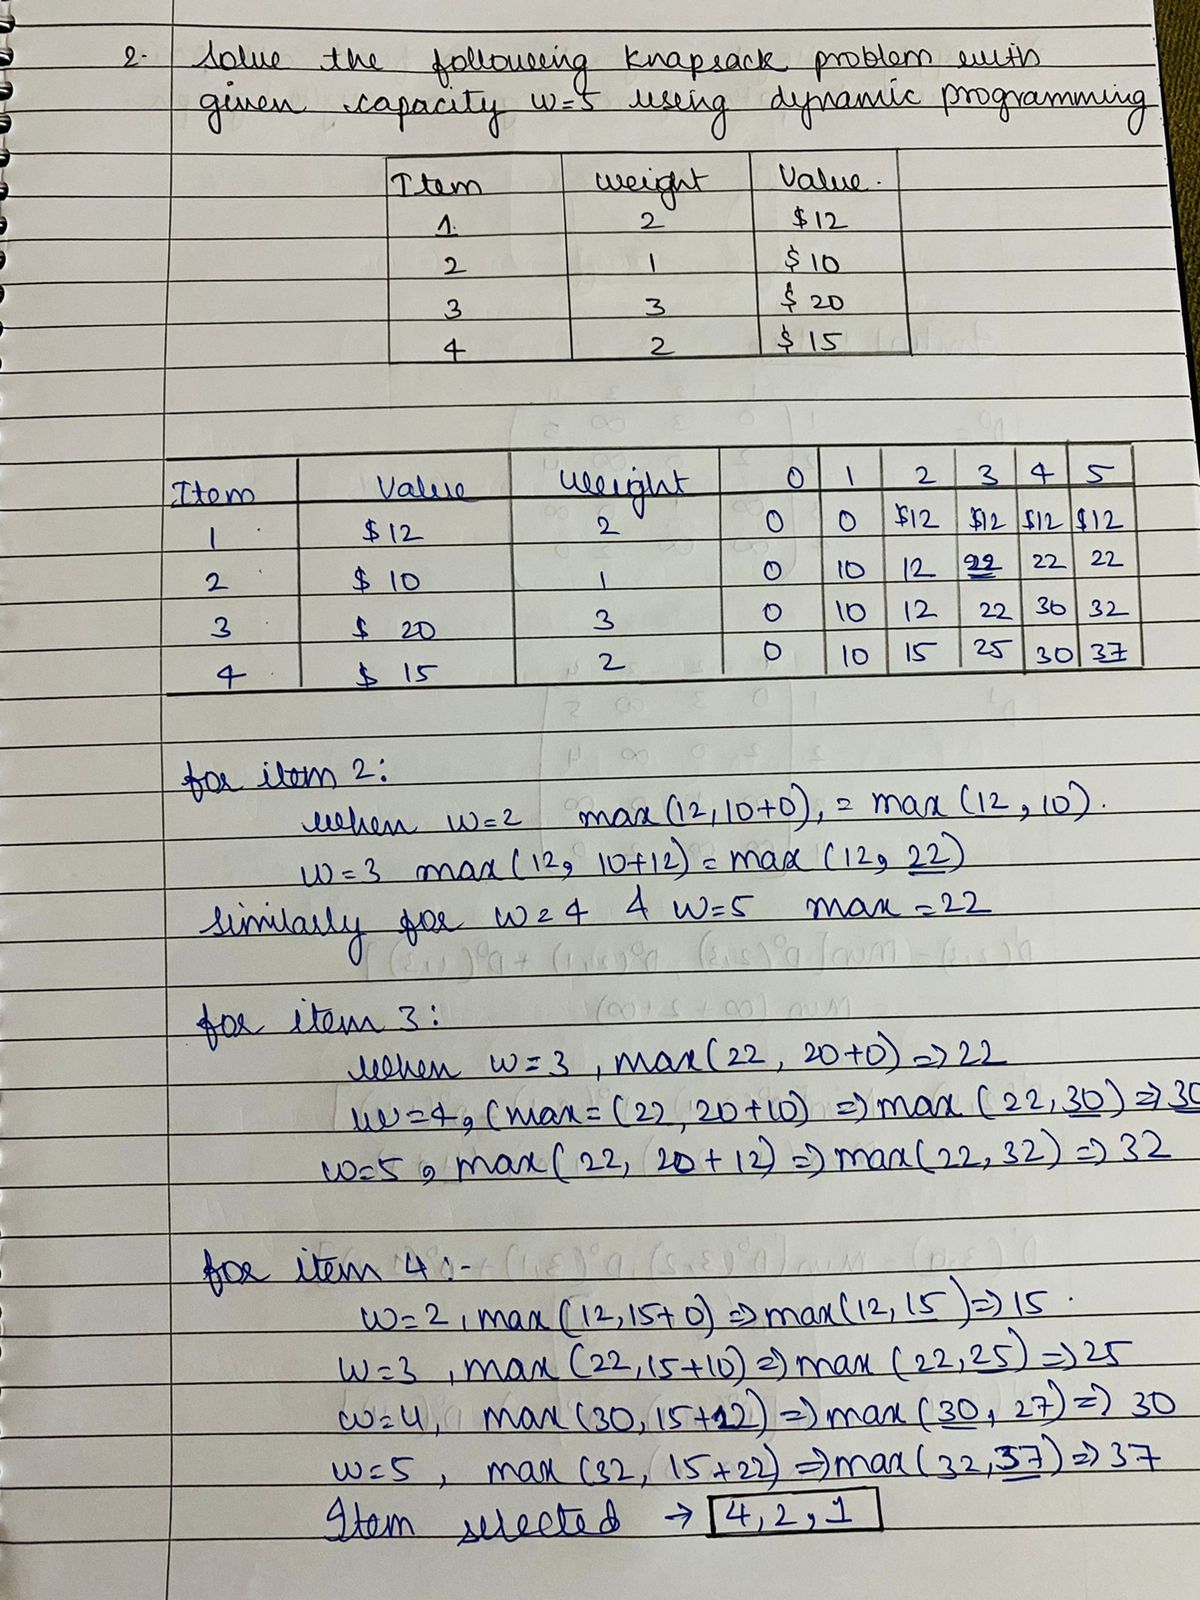 2. Solve the following knapsack problem with
given capacity w=5 using dynamic programming
Item weight Value.
1. 2 $12
2 1 $10
3 3 $20
4 2 $15
Item Value weight 0 1 2 3 4 5
1 $12 2 0 0 $12 $12 $12 $12
2 $10 1 0 10 12 22 22 22
3 $ 20 3 0 10 12 22 30 32
4 $ 15 2 0 10 15 25 30 37
for item 2:
when w=2 max(12,10+0), = max(12,10).
w=3 max(12, 10+12) = max(12, 22)
similarly for w=4 & w=5 max=22
for item 3:
when w=3, max(22, 20+0) => 22
w=4, (max=(22, 20+10) => max(22,30) => 30
w=5, max(22, 20+12) => max(22,32) => 32
for item 4:-
w=2, max(12,15+0) => max(12,15) => 15.
w=3, max(22,15+10) => max(22,25) => 25
w=4, max(30,15+12) => max(30, 27) => 30
w=5, max(32, 15+22) => max(32,37) => 37
Item selected → 4,2,1